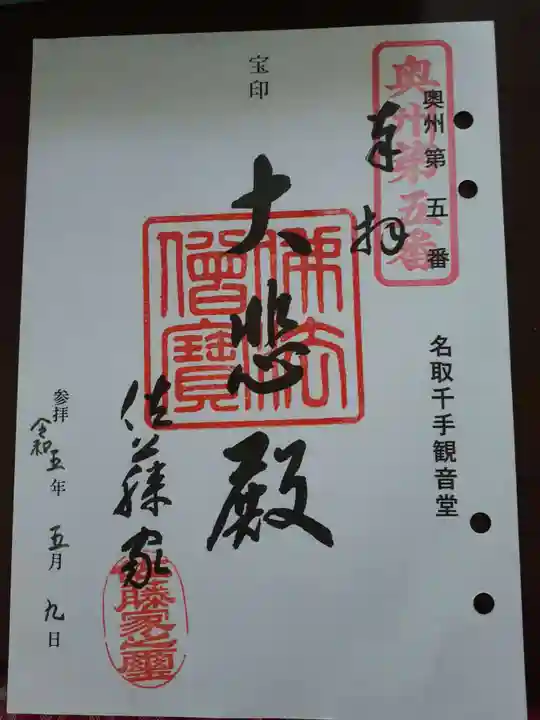 奥州第五番
奥州第五番
名取千手観音堂
奉拝
宝印
大悲殿
佛法
僧寶
佐藤家
佐藤家之璽
参拝
令和五年五月九日